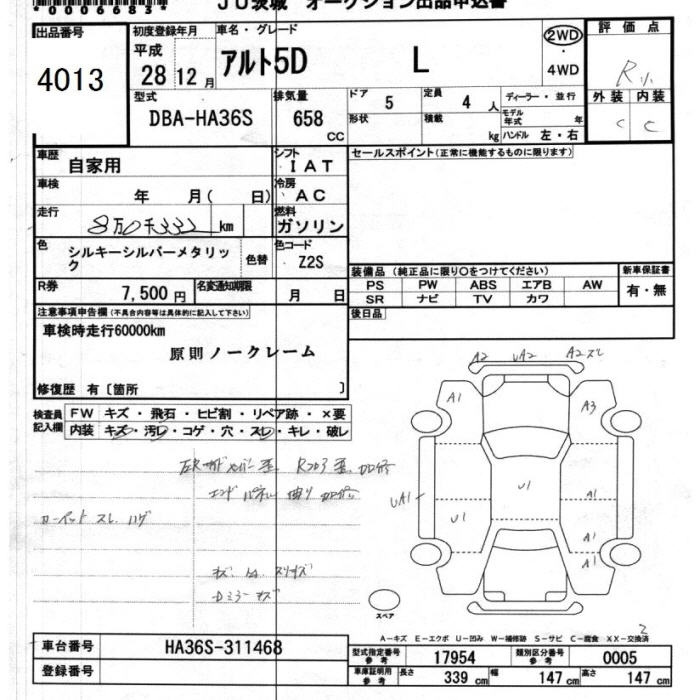 *0006683*
JU茨城 オークション出品申込書
出品番号
4013
初度登録年月
平成
28 12月
車名・グレード
アルト5D L
2WD
・
4WD
評価点
R
外装 内装
C C
型式
DBA-HA36S
排気量
658
CC
ドア
5
定員
4 人
ディーラー・並行
形状
積載
kg
モデル
年式
年
ハンドル 左・右
車歴
自家用
シフト
IAT
セールスポイント(正常に機能するものに限ります)
車検
年 月( 日)
冷房
AC
走行
8万0千332 km
燃料
ガソリン
色
シルキーシルバーメタリッ
ク
色替
色コード
Z2S
R券
7,500円
名変通知期限
月 日
装備品 (純正品に限り○をつけてください)
新車保証書
PS PW ABS エアB AW
有・無
SR ナビ TV カワ
後日品
注意事項申告欄(不具合内容等は具体的に記入して下さい)
車検時走行60000km
原則ノークレーム
修復歴 有〔箇所 〕
検査員
記入欄
FW キズ・飛石・ヒビ割・リペア跡・×要
内装 キズ・汚レ・コゲ・穴・スレ・キレ・破レ
エンドパネル 曲り
スレ ハゲ
Dミラー キズ
A2 UA2 A2スレ
A1 A3
UA1 U1 U1 A1
A1
A1
スペア
2
A-キズ E-エクボ U-凹み W-補修跡 S-サビ C-腐食 XX-交換済
車台番号
HA36S-311468
型式指定番号
参考
17954
類別区分番号
参考
0005
登録番号
車庫証明用
参考
長さ 339 cm
幅 147 cm
高さ 147 cm